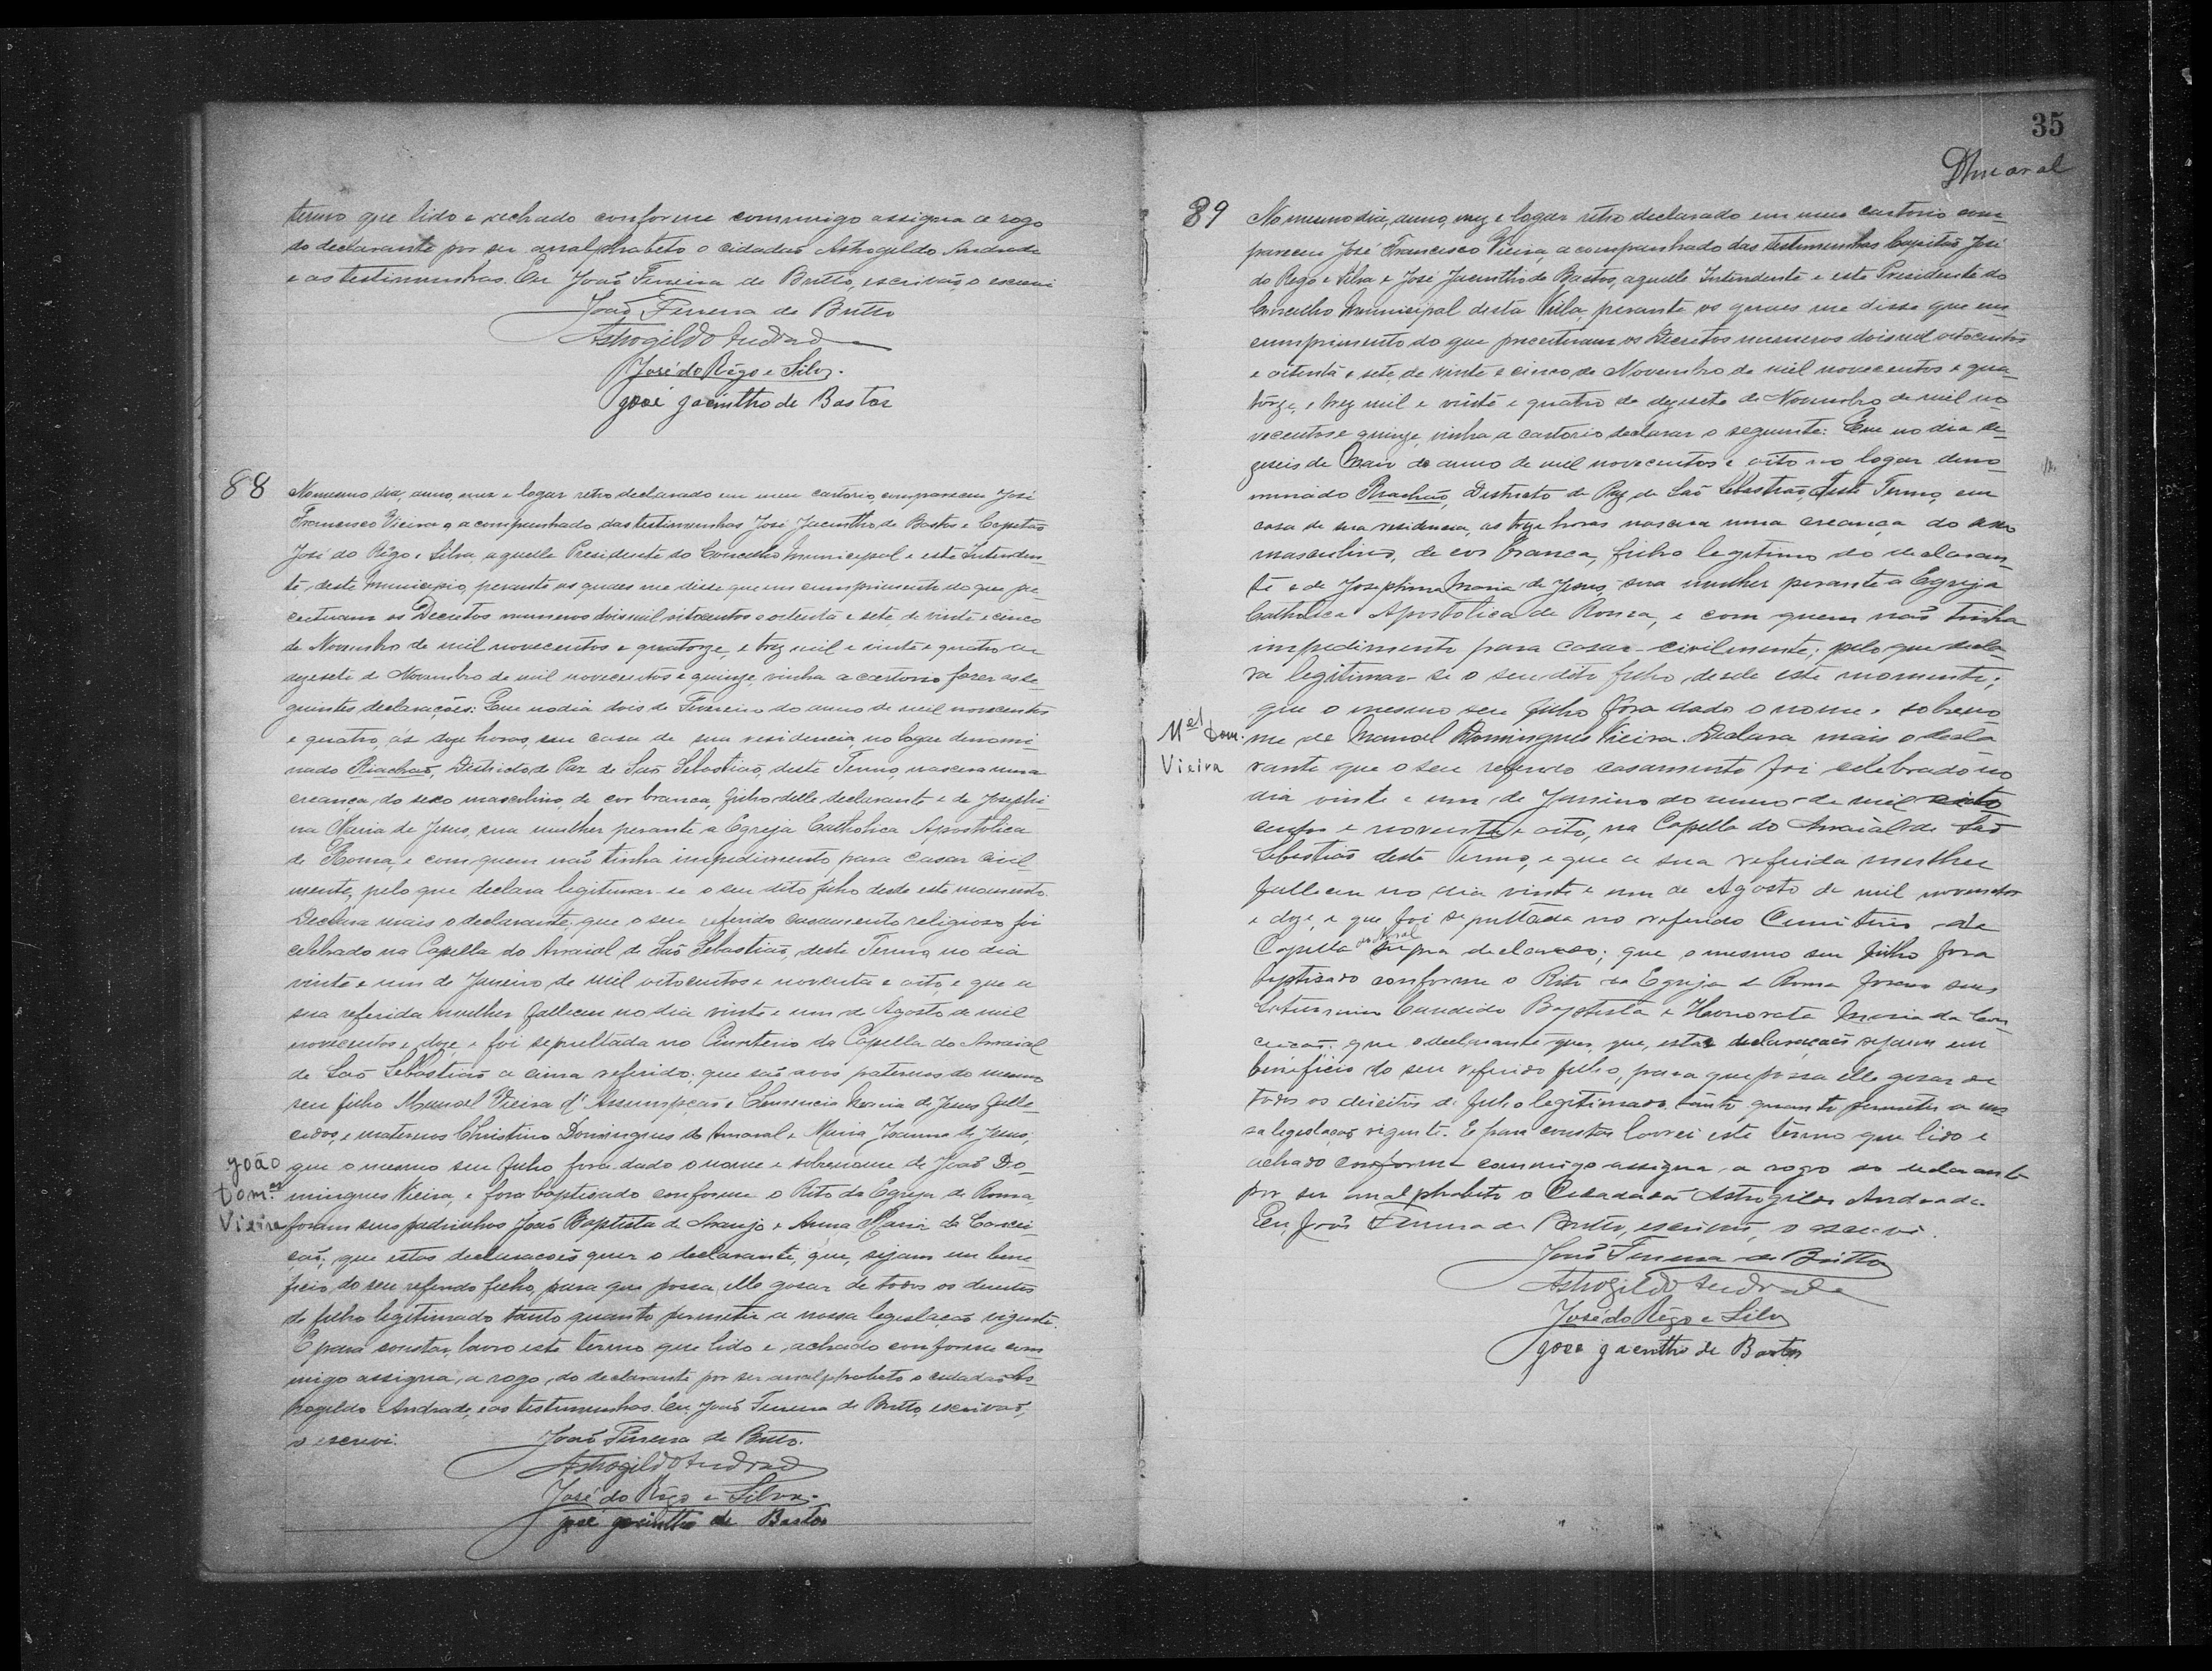 termo que lido e achado conforme commigo assigna a rogo
do declarante por ser analphabeto o cidadão Astrogildo Andrade
e as testimunhas. Eu João Ferreira de Britto, escrivão, o escrevi
João Ferreira de Britto
Astrogildo Andrade
José do Rêgo e Silva.
José Jacintho de Bastos
88
No mesmo dia, anno, mez e logar retro declarado em meu cartorio, compareceu José
Francisco Vieira, acompanhado das testimunhas José Jacintho de Bastos e Capitão
José do Rêgo e Silva, aquelle Presidente do Concelho Municipal e este Intenden-
te, deste municipio, perante os quaes me disse que em cumprimento do que pre-
ceituam os Decretos numeros dois mil oitocentos e oitenta e sete, de vinte e cinco
de Novembro de mil novecentos e quatorze, e trez mil e vinte e quatro de
dezesete de Novembro de mil novecentos e quinze, vinha a cartorio fazer as se-
guintes declarações: Que no dia dois de Fevereiro do anno de mil novecentos
e quatro, ás doze horas, em casa de sua residencia, no logar denomi-
nado Riachão, Districto de Paz de São Sebastião, deste Termo, nascera uma
creança do sexo masculino, de cor branca, filho delle declarante e de Josephi-
na Maria de Jesus, sua mulher perante a Egreja Catholica Apostolica
de Roma, e com quem não tinha impedimento para casar civil-
mente, pelo que declara legitimar-se o seu dito filho desde este momento.
Declara mais o declarante: que o seu referido casamento religioso foi
celebrado na Capella do Arraial de São Sebastião, deste Termo, no dia
vinte e um de Janeiro de mil oitocentos e noventa e oito, e que a
sua referida mulher falleceu no dia vinte e um de Agosto de mil
novecentos e doze, e foi sepultada no Cimiterio da Capella do Arraial
de São Sebastião a cima referido; que são avos paternos do mesmo
seu filho Manoel Vieira d'Assumpção e Clemencia Maria de Jesus, falle-
cidos, e maternos Christino Domingues do Amaral e Maria Joanna de Jesus;
João
Dom.es
Vieira
que o mesmo seu filho fora dado o nome e sobrenome de João Do-
mingues Vieira, e fora baptisado conforme o Rito da Egreja de Roma,
foram seus padrinhos João Baptista de Araujo e Anna Maria da Concei-
ção; que estas declarações quer o declarante, que, sejam em bene-
ficio do seu referido filho, para que possa elle gosar de todos os direitos
de filho legitimado tanto quanto permitir a nossa legislação vigente.
E para constar, lavro este termo que lido e achado conforme com-
migo assigna, a rogo, do declarante por ser analphabeto o cidadão As-
trogildo Andrade, e as testimunhas. Eu, João Ferreira de Britto, escrivão,
o escrevi.
João Ferreira de Britto.
Astrogildo Andrade
José do Rêgo e Silva.
José Jacintho de Bastos
35
Amaral
89
No mesmo dia, anno, mez e logar retro declarado em meu cartorio com-
pareceu José Francisco Vieira, acompanhado das testimunhas Capitão José
do Rego e Silva e José Jacintho de Bastos, aquelle Intendente e este Presidente do
Concelho Municipal desta Villa, perante os quaes me disse que em
cumprimento do que preceituam os Decretos numeros dois mil oitocentos
e oitenta e sete, de vinte e cinco de Novembro de mil novecentos e qua-
torze, e trez mil e vinte e quatro de dezesete de Novembro de mil no-
vecentos e quinze, vinha a cartorio declarar o seguinte: Que no dia de-
zeseis de Maio do anno de mil novecentos e oito no logar deno-
minado Riachão, Districto de Paz de São Sebastião, deste Termo, em
casa de sua residencia, as treze horas nascera uma creança do sexo
masculino, de cor branca, filho legitimo do declaran-
te e de Josephina Maria de Jesus, sua mulher perante a Egreja
Catholica Apostolica de Roma, e com quem não tinha
impedimento para casar civilmente; pelo que decla-
ra legitimar-se o seu dito filho, desde este momento;
que o mesmo seu filho fora dado o nome e sobreno-
M.el Dom.
Vieira
me de Manoel Domingues Vieira. Declara mais o decla-
rante que o seu referido casamento foi celebrado no
dia vinte e um de Janeiro do anno de mil oito
centos e noventa e oito, na Capella do Arraial de São
Sebastião deste Termo, e que a sua referida mulher
falleceu no dia vinte e um de Agosto de mil novecentos
e doze, e que foi sepultada no referido Cimiterio da
Capella do Arraial supra declarado; que o mesmo seu filho fora
baptisado conforme o Rito da Egreja de Roma foram seus
Candido Baptista e Honorata Maria da Con-
ceição; que o declarante quer, que, estas declarações sejam em
beneficio do seu referido filho, para que possa elle gosar de
todos os direitos de filho legitimado tanto quanto permitir a nos-
sa legislação vigente. E para constar lavrei este termo que lido e
achado conforme commigo assigna, a rogo do declarante
por ser analphabeto o Cidadão Astrogildo Andrade.
Eu, João Ferreira de Britto, escrivão, o escrevi.
João Ferreira de Britto
Astrogildo Andrade
José do Rêgo e Silva
José Jacintho de Bastos